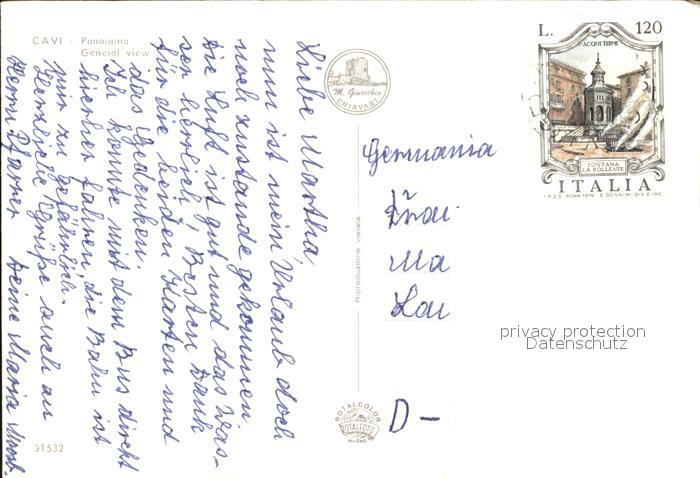 CAVI - Panorama
General view
Liebe Martha,
nun ist mein Urlaub doch
noch zustande gekommen.
Die Luft ist gut und das Was-
ser herrlich, Besten Dank
für die beiden Karten und
das Gedenken.
Ich konnte mit dem Bus direkt
hierher fahren, die Bahn ist
mir zu gefährlich.
Herzliche Grüße auch an
Herrn Pfarrer Deine Maria
31532
M. Ginocchio
CHIAVARI
Riproduzione vietata
ROTALCOLOR
ROTALFOTO
MILANO
L. 120
ACQUI TERME
FONTANA
LA BOLLENTE
ITALIA
I.P.Z.S. ROMA 1976 E. DONNINI DIS. E INC.
Germania
Frau
Ma
Lau
D-
privacy protection
Datenschutz